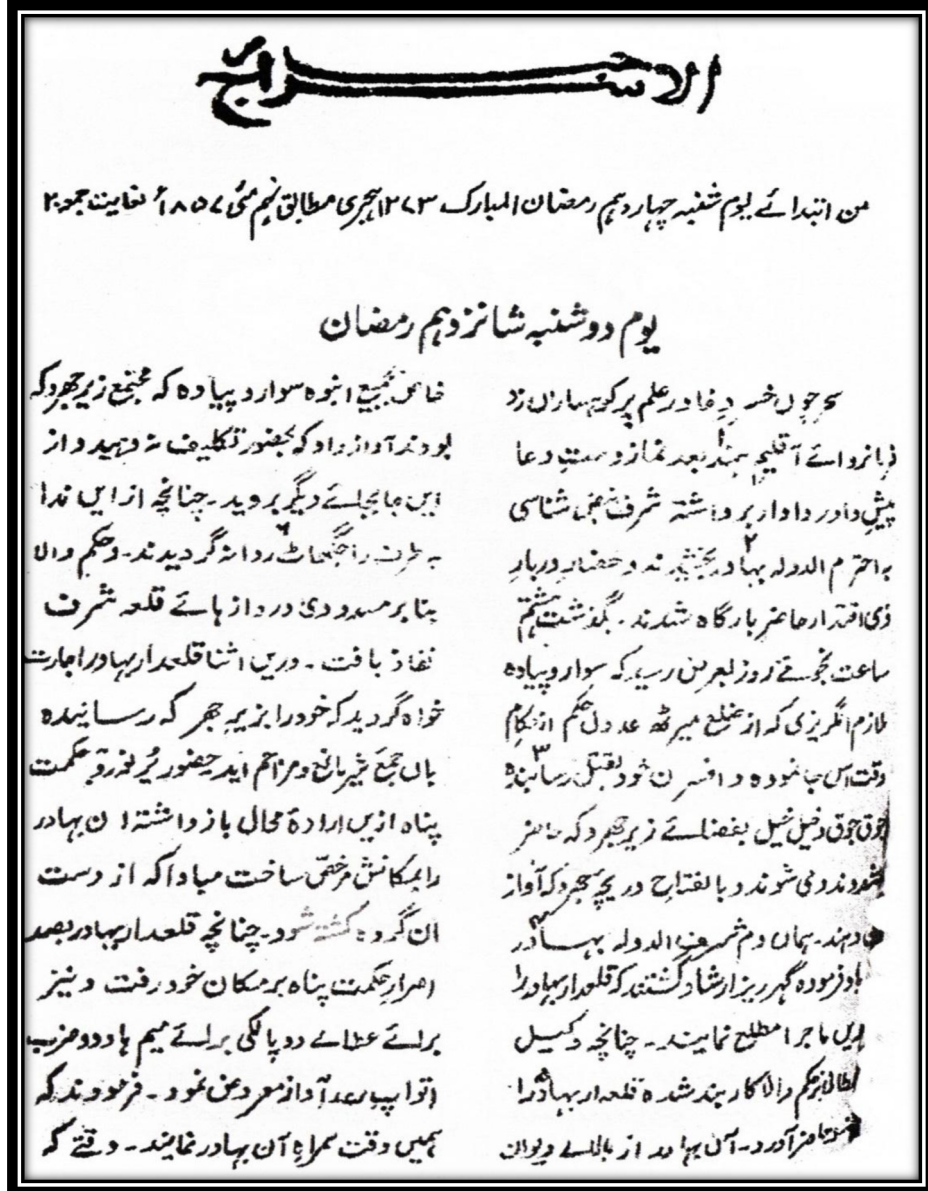 من ابتدائے یوم شنبہ چہاردہم رمضان المبارک ۱۲۷۳ہجری مطابق نہم مئی ۱۸۵۷ء لغایت جمعہ ۲
یوم دوشنبہ شانزدہم رمضان
سحر چوں خسرو خاور علم بر کوہساراں زد
فرمانروائے اقلیم ہند بعد نماز دست دعا
پیش داور دادار برداشتہ شرف نبض شناسی
بہ احترام الدولہ بہادر بخشیدند و حضار دربار
ذی اقتدار حاضر بارگاہ شدند۔ بگذشت ہشتم
ساعت نجومے روز بعرض رسید کہ سوار و پیادہ
ملازم انگریزی کہ از ضلع میرٹھ عدول حکم از حکام
وقت اس جا نمودہ و افسران خود بقتل رسانیدہ
جوق جوق و خیل خیل بفضائے زیر جھروکہ حاضر
شدند و می شوند و بالفتاح دریچہ جھروکہ آواز
دہند۔ ہماں دم شرف الدولہ بہادر
یاد فرمودہ گہرریز ارشاد گشتند کہ قلعدار بہادر را
ایں ماجرا مطلع نمایند۔ چنانچہ وکیل
حکم والا کاربند شدہ قلعدار بہادر را
آورد۔ آں بہادر از بالائے دیوان
خاص بجمیع انبوہ سوار و پیادہ کہ مجتمع زیر جھروکہ
بودند آواز داد کہ بحضور تکلیف نہ دہید و از
ایں جا بجائے دیگر بروید۔ چنانچہ از ایں ندا
بہ طرف راجگھاٹ ۶ روانہ گردیدند۔ و حکم والا
بنا بر مسدودی دروازہائے قلعہ شرف
نفاذ یافت۔ دریں اثنا قلعدار بہادر اجازت
خواہ گردید کہ خود را بزیر جھرکہ رسانیدہ
باں جمع غیر مانع و مزاحم آید۔ حضور پُرنور و حکمت
پناہ ازیں ارادۂ محالی باز داشتہ آن بہادر
را بمکانش مرخص ساخت مبادا کہ از دست
ان گروہ کشتہ شود۔ چنانچہ قلعدار بہادر بصد
اصرار حکمت پناہ بر مکان خود رفت و نیز
برائے عطائے دو پالکی برائے میم ہا و دو ضرب
اتواپ رعد آواز معروض نمود۔ فرمودند کہ
ہمیں وقت ہمراہ آن بہادر نمایند۔ وقتے کہ